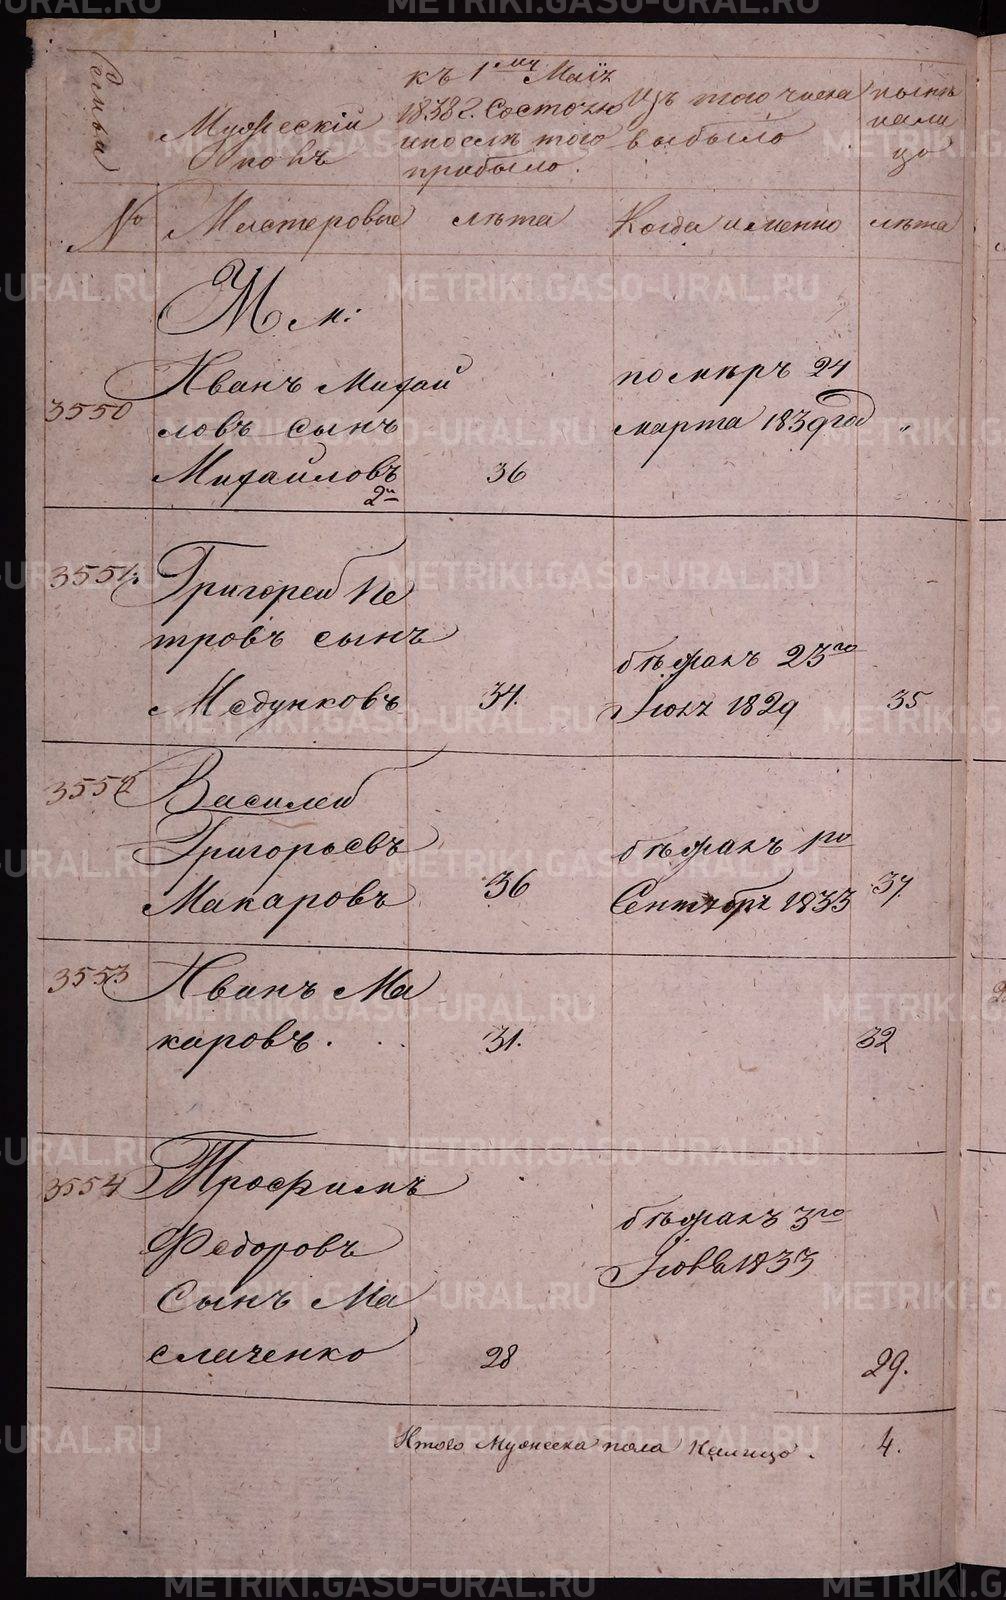 Семьи
Мужескій
Полъ
къ 1му Маія
1838 г. Состоло
и послѣ того
прибыло.
Изъ того числа
выбыло
нынѣ
нали
цо
№
Мастеровые
лѣта
Когда именно
лѣта
М м:
3550
Иванъ Михай
ловъ сынъ
Михайловъ
2й
36
помѣръ 24
марта 1839 год
"
3551.
Григорей Пе
тровъ сынъ
Медунковъ
34.
бѣжалъ 23го
Іюля 1829
35
3552
Василей
Григорьевъ
Макаровъ
36
бѣжалъ 1го
Сентября 1833
37.
3553
Иванъ Ма
каровъ.
31.
32
3554
Трофимъ
Федоровъ
Сынъ Ма
слаченко
28
бѣжалъ 3го
1833
29.
Итого Мужеска пола Налицо.
4.
METRIKI.GASO-URAL.RU